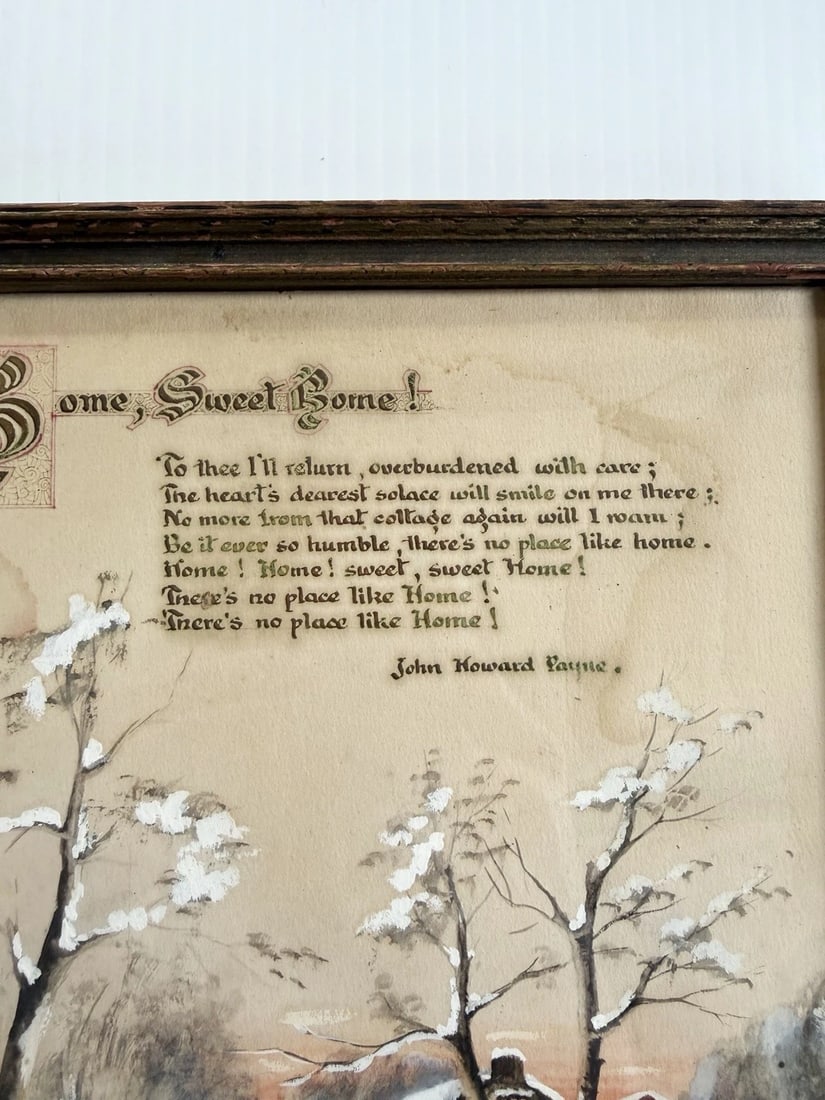 Home, Sweet Home!
To thee I'll return, overburdened with care;
The heart's dearest solace will smile on me there;
No more from that cottage again will I roam;
Be it ever so humble, there's no place like home.
Home! Home! sweet, sweet Home!
There's no place like Home!
There's no place like Home!
John Howard Payne.